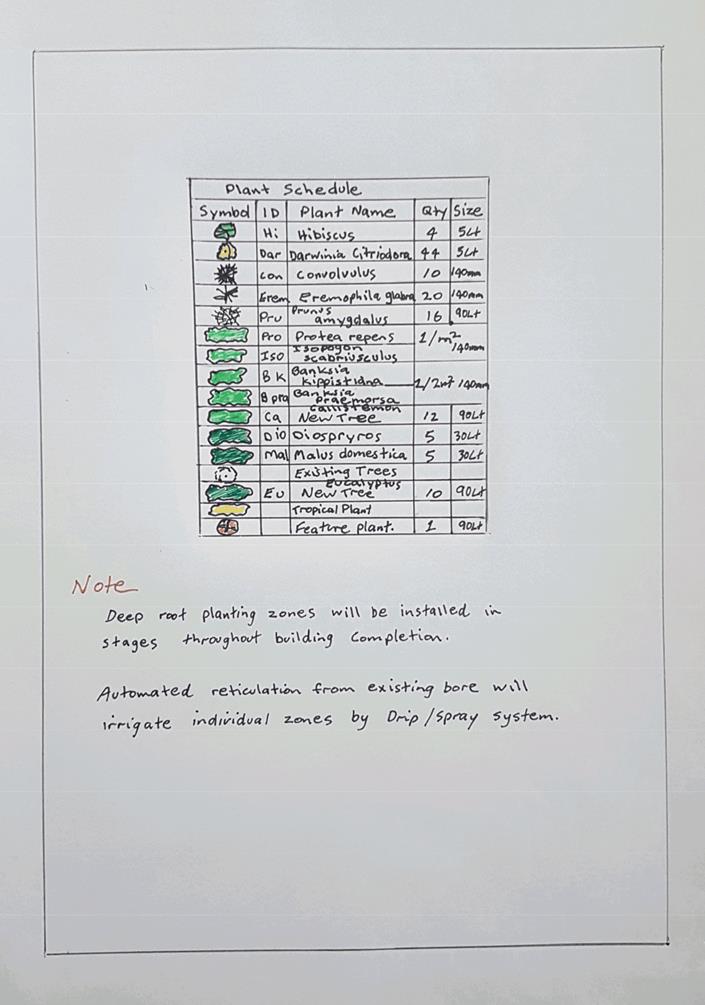 Plant Schedule
Symbol ID Plant Name Qty Size
Hi Hibiscus 4 5Lt
Dar Darwinia Citriodora 44 5Lt
Con Convolvulus 10 140mm
Erem Eremophila glabra 20 140mm
Pru Prunus amygdalus 16 90Lt
Pro Protea repens 1/m² 140mm
Iso Isopogon scabriusculus
BK Banksia Kippistiana 1/2m² 140mm
Bpra Banksia Praemorsa
Ca Callistemon New Tree 12 90Lt
Dio Diospryros 5 30Lt
Mal Malus domestica 5 30Lt
Existing Trees
Eu Eucalyptus New Tree 10 90Lt
Tropical Plant
Feature plant. 1 90Lt
Note
Deep root planting zones will be installed in
stages throughout building completion.
Automated reticulation from existing bore will
irrigate individual zones by Drip/Spray system.